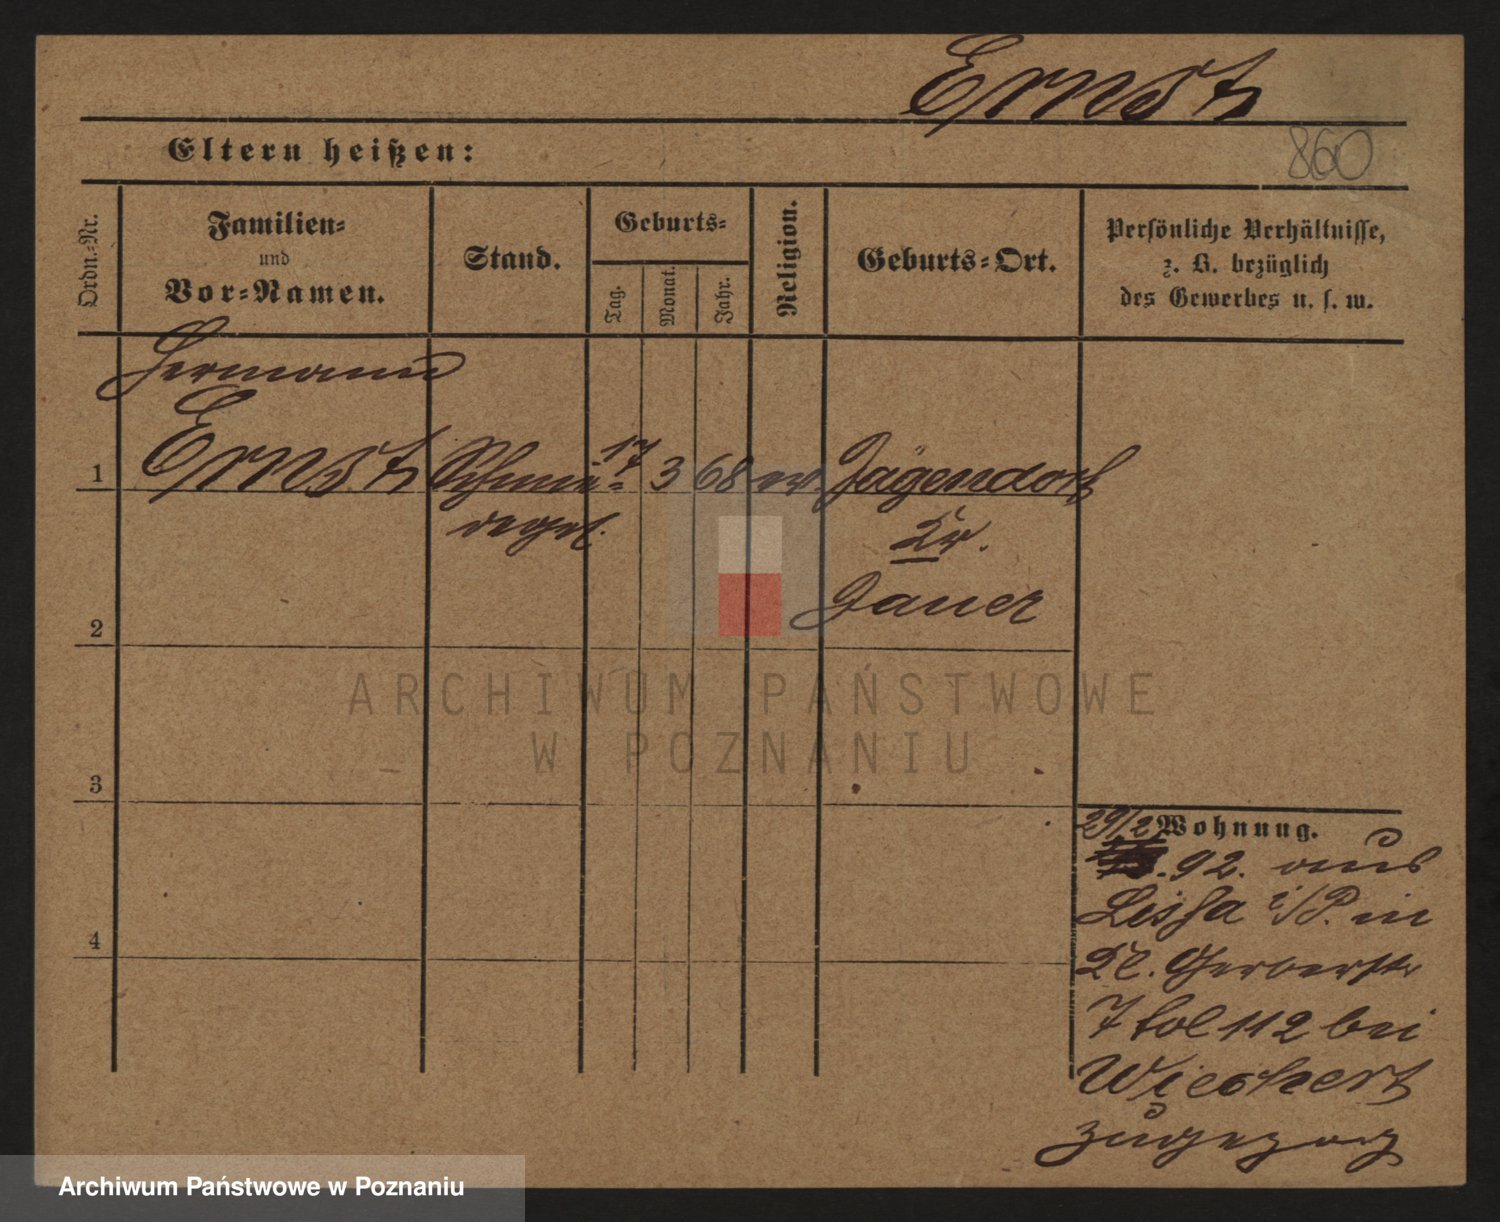 Ernst
860
Eltern heißen:
Ordn.=Nr.
Familien=
und
Vor=Namen.
Stand.
Geburts=
Tag.
Monat.
Jahr.
Religion.
Geburts=Ort.
Persönliche Verhältnisse,
z. B. bezüglich
des Gewerbes u. s. w.
Hermann
1 Ernst Schmie= 17 3 68 ev. Jägendorf
degel. Kr.
Jauer
2
ARCHIWUM PAŃSTWOWE
W POZNANIU
3
29/2 Wohnung.
92. aus
Lissa i/P. in
Kl. Gerberstr
7 fol 112 bei
Wieckert
zugezog
4
Archiwum Państwowe w Poznaniu